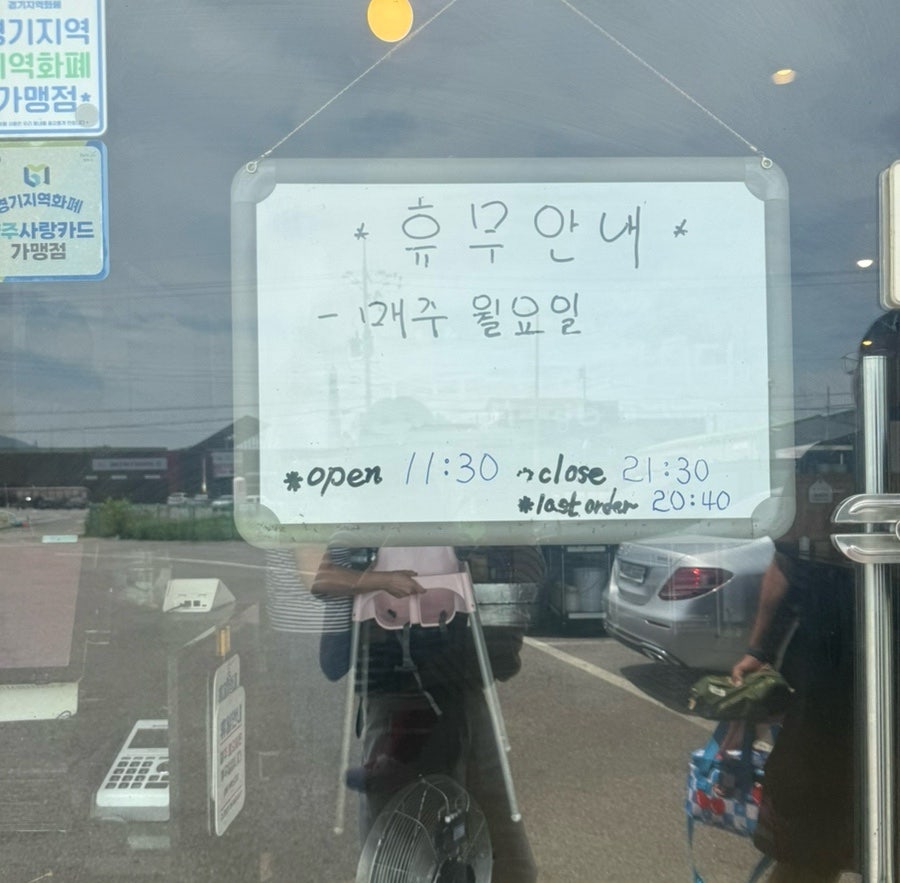 경기지역화폐
경기지역
지역화폐
가맹점
경기지역화폐
주사랑카드
가맹점
* 휴무안내 *
- 매주 월요일
*open 11:30 ~close 21:30
*last order 20:40